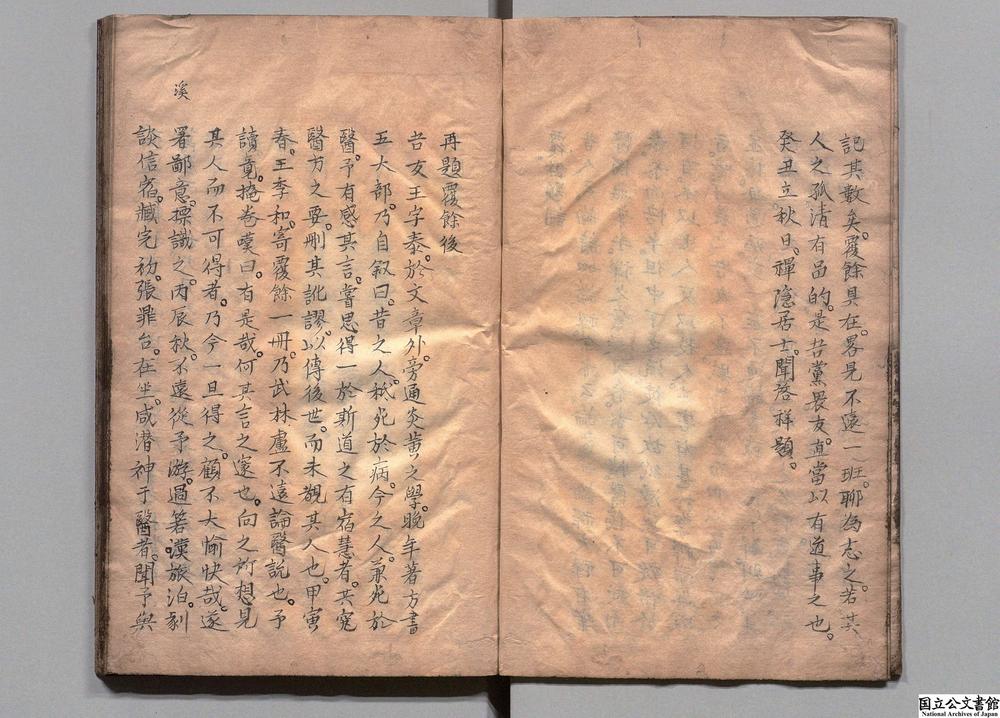 記其數矣。覆餘具在。畧見不遠一班。聊為志之。若其
人之孤清有品的。是吾黨畏友。直當以有道事之也。
癸丑立秋日。禪隱居士。聞啓祥題。
再題覆餘後
吾友王宇泰。於文章外。旁通炎黃之學。晚年著方書
五大部。乃自叙曰。昔之人。秪死於病。今之人。兼死於
醫。予有感其言。嘗思得一於斯道之有宿慧者。其究
醫方之要。刪其訛謬。以傳後世。而未覯其人也。甲寅
春。王季和。寄覆餘一冊。乃武林盧不遠論醫說也。予
讀竟。掩卷嘆曰。有是哉。何其言之邃也。向之所想見
其人而不可得者。乃今一旦得之。顧不大愉快哉。遂
署鄙意。摽識之。丙辰秋。不遠從予游。過箬溪。旅泊。剡
談信宿。臧完初。張羅台。在坐。咸潛神于醫者。聞予與
溪
国立公文書館
National Archives of Japan